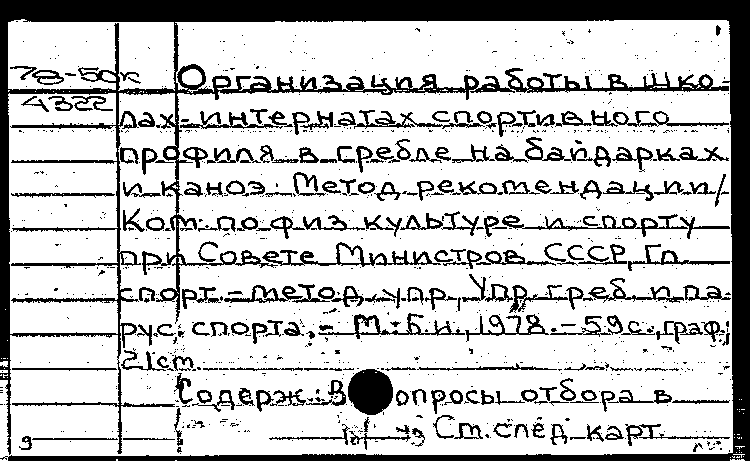 78-50к Организация работы в шко-
4322 лах-интернатах спортивного
профиля в гребле на байдарках
и каноэ: Метод. рекомендации/
Ком. по физ культуре и спорту
при Совете Министров СССР, Гл.
спорт.-метод. упр., Упр. греб. и па-
рус. спорта.- М.: Б.и., 1978.-59с., граф.;
21см.
Содерж.: Вопросы отбора в
9 Ст. след. карт.